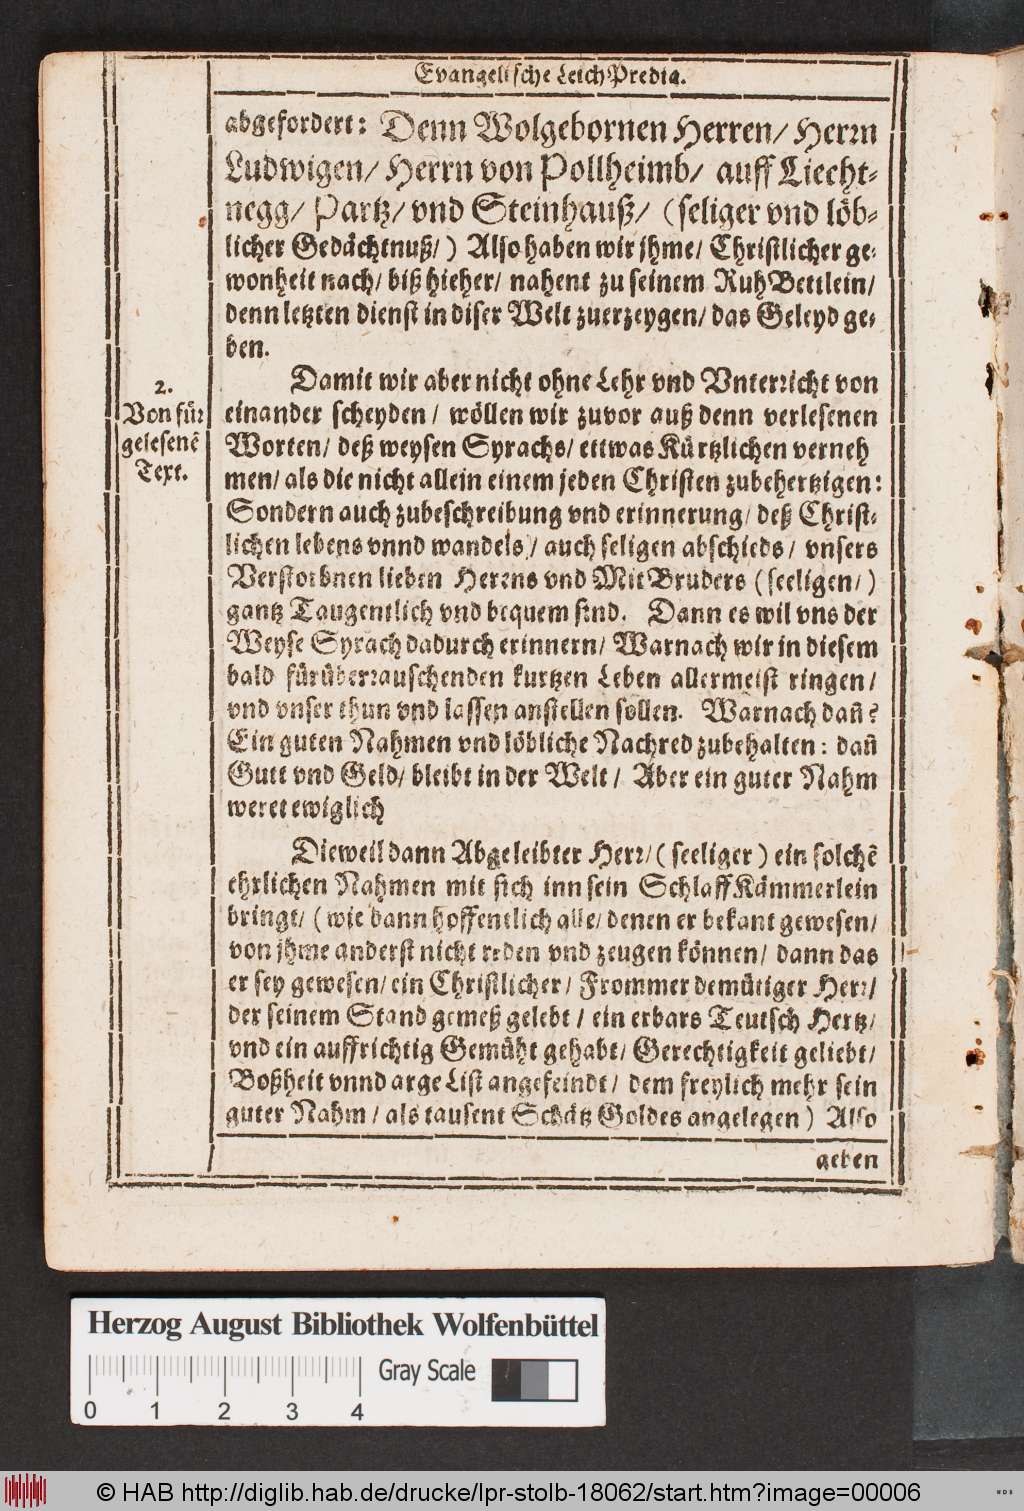 Evangelische LeichPredig.
abgefordert: Denn Wolgebornen Herren/ Herrn
Ludwigen/ Herrn von Pollheimb/ auff Liecht-
negg/ Partz/ vnd Steinhauß/ (seliger vnd löb-
licher Gedächtnuß/) Also haben wir jhme/ Christlicher ge-
wonheit nach/ biß hieher/ nahent zu seinem RuhBettlein/
denn letzten dienst in diser Welt zuerzeygen/ das Geleyd ge-
ben.
Damit wir aber nicht ohne Lehr vnd Vnterricht von
einander scheyden/ wöllen wir zuvor auß denn verlesenen
Worten/ deß weysen Syrachs/ ettwas Kürtzlichen verneh
men/ als die nicht allein einem jeden Christen zubehertzigen:
Sondern auch zubeschreibung vnd erinnerung/ deß Christ-
lichen lebens vnnd wandels/ auch seligen abschieds/ vnsers
Verstorbnen lieben Herrns vnd MitBruders (seeligen/)
gantz Taugentlich vnd bequem sind. Dann es wil vns der
Weyse Syrach dadurch erinnern/ Warnach wir in diesem
bald fürüberrauschenden kurtzen Leben allermeist ringen/
vnd vnser thun vnd lassen anstellen sollen. Warnach dañ?
Ein guten Nahmen vnd löbliche Nachred zubehalten: dañ
Gutt vnd Geld/ bleibt in der Welt/ Aber ein guter Nahm
weret ewiglich
2.
Von für
gelesenẽ
Text.
Dieweil dann Abgeleibter Herr/ (seeliger) ein solchẽ
ehrlichen Nahmen mit sich inn sein SchlaffKämmerlein
bringt/ (wie dann hoffentlich alle/ denen er bekant gewesen/
von jhme anderst nicht reden vnd zeugen können/ dann das
er sey gewesen/ ein Christlicher/ Frommer demütiger Herr/
der seinem Stand gemeß gelebt/ ein erbars Teutsch Hertz/
vnd ein auffrichtig Gemüht gehabt/ Gerechtigkeit geliebt/
Boßheit vnnd arge List angefeindt/ dem freylich mehr sein
guter Nahm/ als tausent Schätz Goldes angelegen) Also
geben
Herzog August Bibliothek Wolfenbüttel
Gray Scale
0 1 2 3 4
© HAB http://diglib.hab.de/drucke/lpr-stolb-18062/start.htm?image=00006